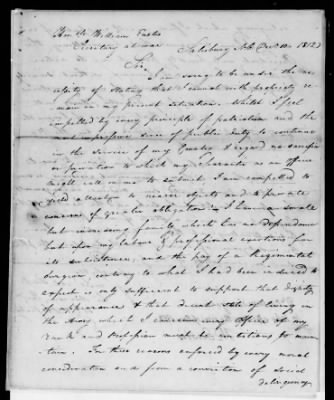 Hon. Dr. William Eustis
Secretary at war
Salisbury N.C. Decr. 10th 1812
Sir,
I am sorry to be under the ne-
cessity of stating that I cannot with propriety re-
main in my present situation. Whilst I feel
impelled by every principle of patriotism and the
most imperious sense of public duty to continue
in the service of my Country & regard no sacrifice
or privation to which my character as an officer
might call me to submit, I am compelled to
yield attention to nearer objects and to private
concerns of greater obligation. I have a small
but increasing family which has no dependance
but upon my labour & professional exertions for
its subsistence, and the pay of a Regimental
Surgeon, contrary to what I had been induced to
expect is only sufficient to support that dignity
of appearance & that decent state of living in
the Army which I conceive every Officer of my
rank and Profession must be ambitious to main-
tain. For these reasons enforced by every moral
consideration and from a conviction of social
delinquency